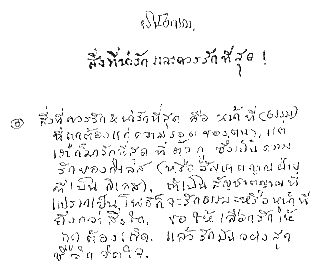 สิ่งที่น่ารัก และควรรักที่สุด !
สิ่งที่ควรรัก & น่ารักที่สุด คือ หน้าที่ (ธรรม)
ที่ถูกต้องแก่ความรอดของตน, แต่
รักที่สุด ที่ตัวกู ซึ่งเป็นความ
รักของกิเลส (หรือสัญชาตญาณฝ่าย
ที่เป็นกิเลส). ถ้าเป็นสัญชาตญาณที่
เป็นโพธิก็จะรักธรรมะหรือหน้าที่
ยิ่งกว่าสิ่งใด, ขอให้เลือกรักให้
ถูกต้องเถิด. แล้วรักมันอย่างสุด